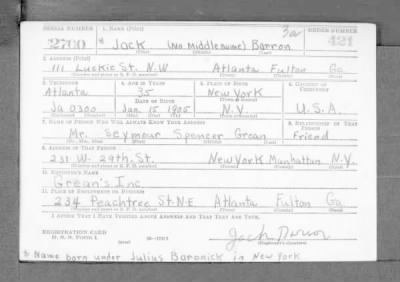 SERIAL NUMBER 1. NAME (Print) ORDER NUMBER
3a
2700 * Jack (No Middle name) Barron 421
2. ADDRESS (Print)
111 Luckie St. N.W Atlanta Fulton Ga
3. TELEPHONE 4. AGE IN YEARS 5. PLACE OF BIRTH 6. COUNTRY OF CITIZENSHIP
Atlanta 35 New York
DATE OF BIRTH
Ja 0300 Jan. 15 1905 N.Y. U.S.A.
7. NAME OF PERSON WHO WILL ALWAYS KNOW YOUR ADDRESS 8. RELATIONSHIP OF THAT PERSON
Mr. Seymour Spencer Grean Friend
9. ADDRESS OF THAT PERSON
231 W. 29th St. New York Manhattan N.Y.
10. EMPLOYER'S NAME
Grean's Inc.
11. PLACE OF EMPLOYMENT OR BUSINESS
234 Peachtree St. N.E Atlanta Fulton Ga
I AFFIRM THAT I HAVE VERIFIED ABOVE ANSWERS AND THAT THEY ARE TRUE.
REGISTRATION CARD
D. S. S. FORM 1
Jack Barron
(Registrant's signature)
* Name born under Julius Baronick in New York